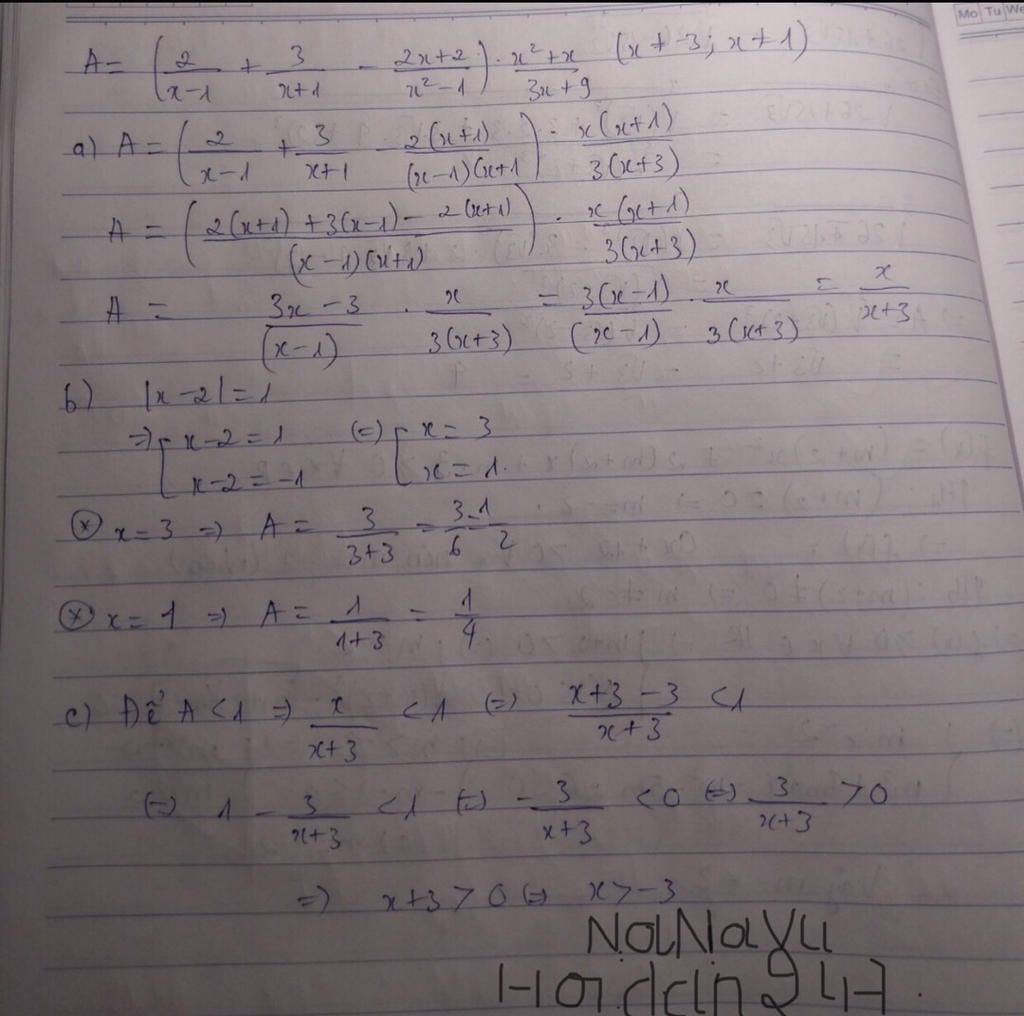 Mo Tu We
A = (2/(x-1) + 3/(x+1) - (2x+2)/(x²-1)) . (x²+x)/(3x+9) (x ≠ -3; x ≠ 1)
a) A = (2/(x-1) + 3/(x+1) - 2(x+1)/((x-1)(x+1)) . x(x+1)/(3(x+3))
A = ((2(x+1) + 3(x-1) - 2(x+1))/((x-1)(x+1))) . x(x+1)/(3(x+3))
A = (3x-3)/(x-1) . x/(3(x+3)) = 3(x-1)/(x-1) . x/(3(x+3)) = x/(x+3)
b) |x-2| = 1
=> [ x-2 = 1 (=) [ x = 3
x-2 = -1 x = 1.
(*) x = 3 => A = 3/(3+3) = 3/6 = 1/2
(*) x = 1 => A = 1/(1+3) = 1/4
c) Để A < 1 => x/(x+3) < 1 (=) (x+3-3)/(x+3) < 1
(=) 1 - 3/(x+3) < 1 (=) - 3/(x+3) < 0 (=) 3/(x+3) > 0
=> x+3 > 0 (=) x > -3
NaNaVu
Hoidap247.